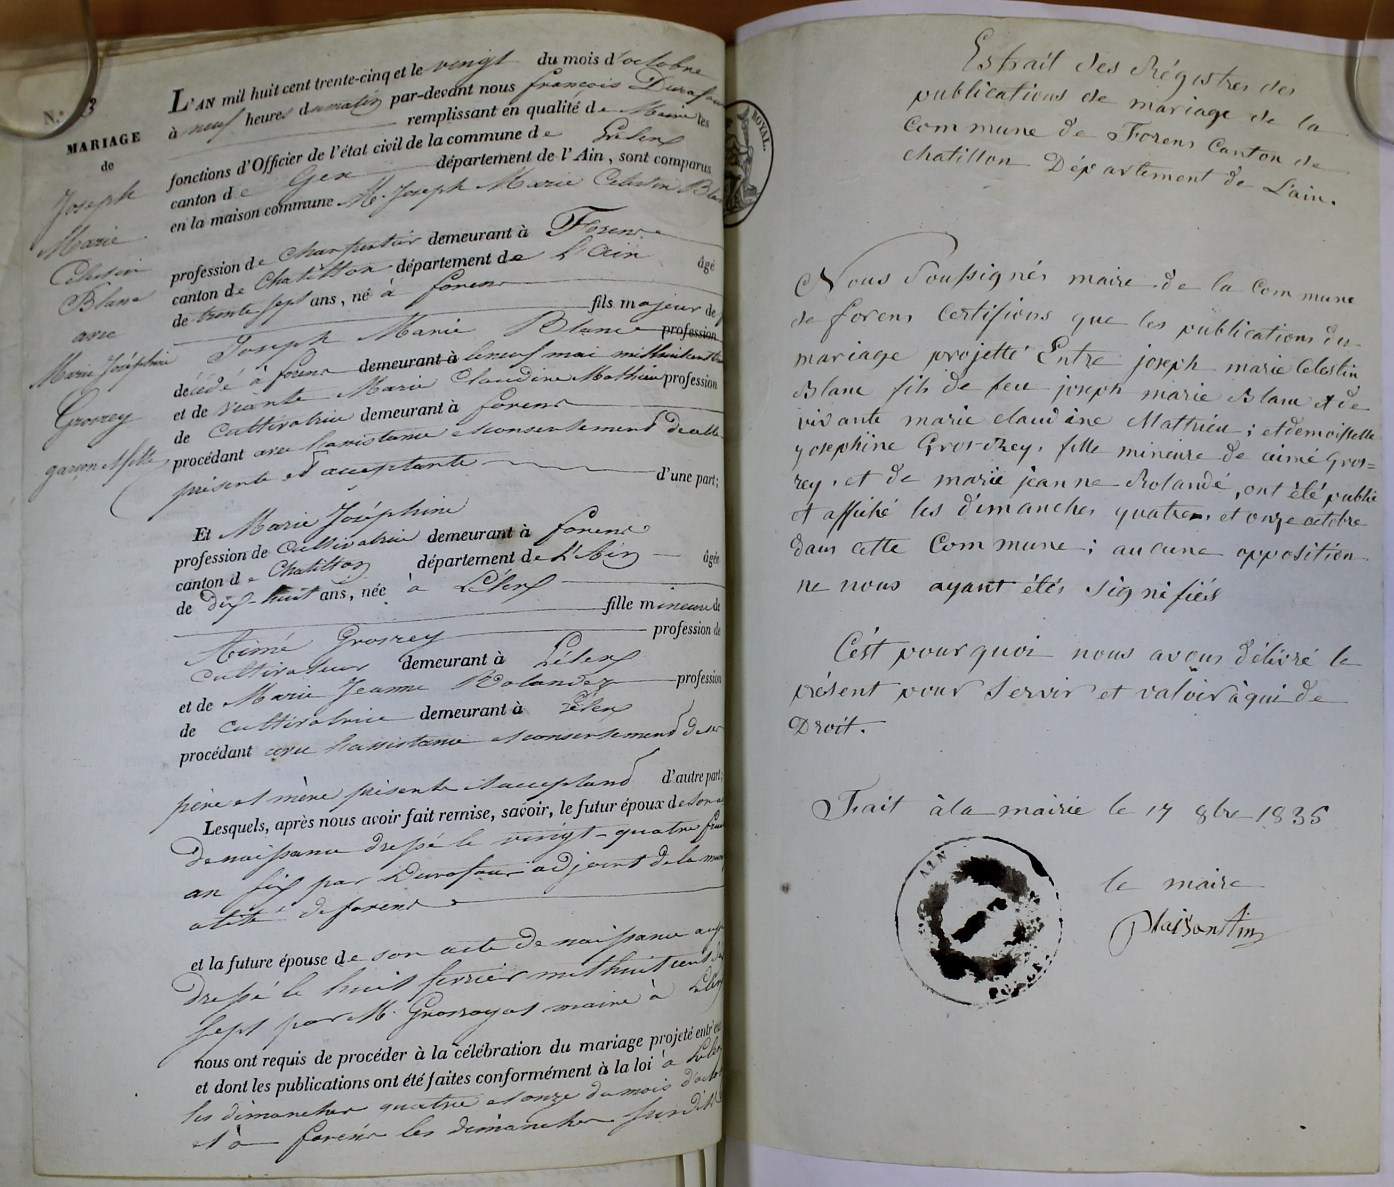 N.º 3
MARIAGE
de
Joseph
Marie
Célestin
Blanc
avec
Marie Joséphine
Grosrey
garçon et fille
L'AN mil huit cent trente-cinq et le vingt du mois d'octobre
à neuf heures du matin par-devant nous françois Durafour
remplissant en qualité de Maire les
fonctions d'Officier de l'état civil de la commune de Lélex
canton de Gex département de l'Ain, sont comparus
en la maison commune M. Joseph Marie Celestin Blanc
profession de Charpentier demeurant à Forens
canton de Chatillon département de L'Ain âgé
de trente sept ans, né à forens
fils majeur de
Joseph Marie Blanc profession
décédé à forens demeurant à le neuf mai mil huit cent
et de vivante Marie Claudine Mathieu profession
de Cultivatrice demeurant à forens
procédant avec l'assistance et consentement de elle
présente et acceptante d'une part;
Et Marie Joséphine
profession de Cultivatrice demeurant à forens
canton de Chatillon département de L'Ain âgée
de dix-huit ans, née à Lélex
fille mineure de
Aimé Grosrey profession de
cultivateur demeurant à Lélex
et de Marie Jeanne Rolandez profession
de cultivatrice demeurant à Lélex
procédant avec l'assistance et consentement de ses
père et mère présents et acceptand d'autre part;
Lesquels, après nous avoir fait remise, savoir, le futur époux de son
De naissance dressé le vingt-quatre
an six par Durafour adjoint de la
de forens
et la future épouse de son acte de naissance
dressé le huit fevrier mil huit cent
sept par M. Grosrey maire à Lélex
nous ont requis de procéder à la célébration du mariage projeté entr'eux
et dont les publications ont été faites conformément à la loi à Lélex
les dimanches quatre et onze du mois d'octobre
et à forens les dimanches
ROYAL.
Estrait des Régistres des
publications de mariage de la
Commune de Forens Canton de
chatillon Département de L'ain.
Nous Soussignés maire de la Commune
de forens Certifions que les publications du
mariage projetté Entre joseph marie Celestin
Blanc fils de feu joseph marie Blanc et de
vivante marie claudine Mathieu; et demoiselle
josephine Gros-Rey, fille mineure de aimé Gros=
rey, et de marie jeanne Rolande, ont été publié
et affiché les dimanches quatre, et onze octobre
dans cette Commune; aucune opposition
ne nous ayant étés signifiés
C'est pourquoi nous avons délivré le
présent pour Servir et valoir à qui de
Droit.
Fait à la mairie le 17 8bre 1835
le maire
AIN